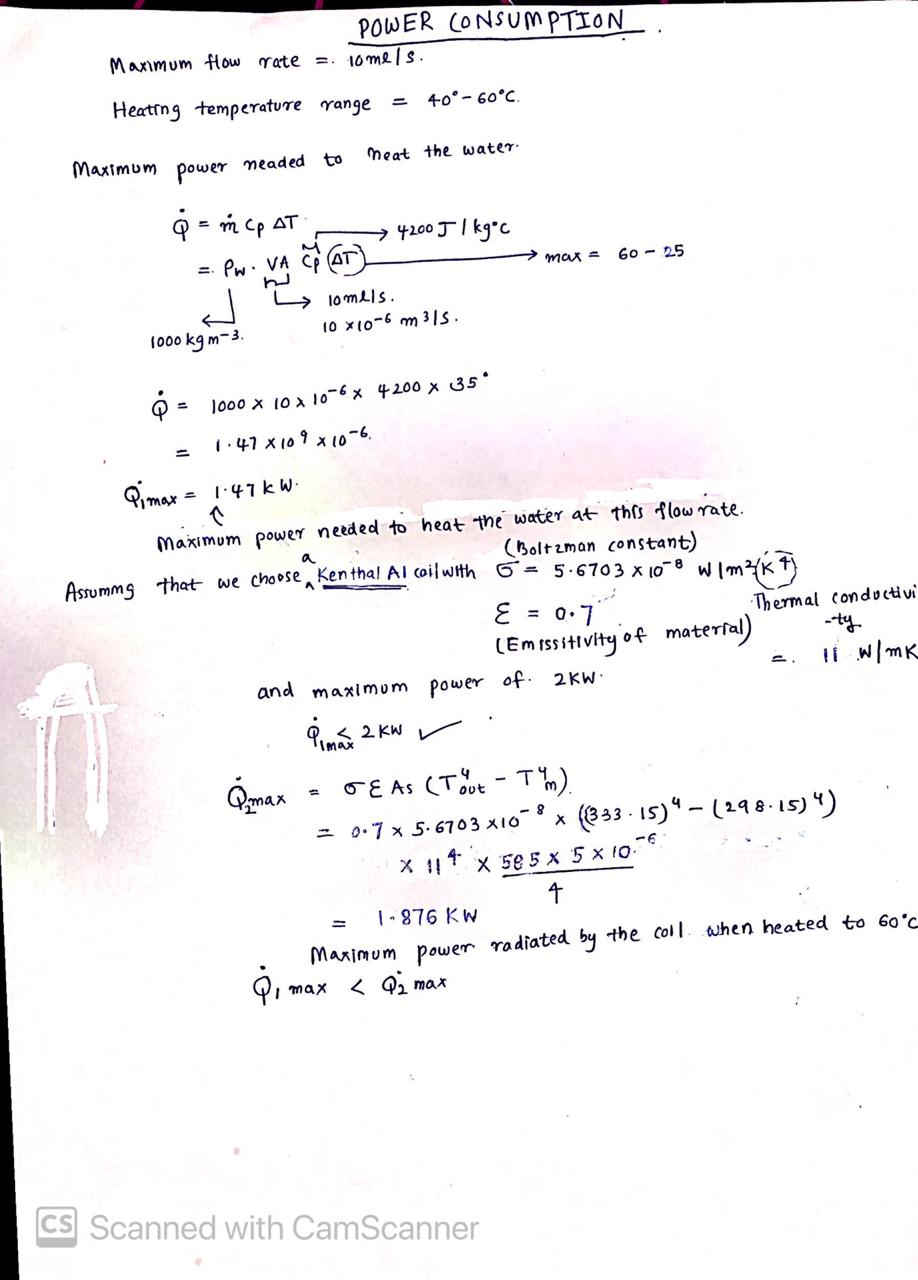 POWER CONSUMPTION .
Maximum flow rate =. 10ml/s.
Heating temperature range = 40° - 60°C.
Maximum power neaded to neat the water.
Q̇ = ṁ Cp ΔT. → 4200 J / kg°C
= ρw. VA Cp (ΔT) → max = 60 - 25
→ 10ml/s.
10 x10⁻⁶ m³/s.
1000 kg m⁻³.
Q̇ = 1000 x 10 x 10⁻⁶ x 4200 x 35°
= 1.47 x 10⁹ x 10⁻⁶.
Q̇1max = 1.47 kW.
↑
Maximum power needed to heat the water at this flow rate.
(Boltzman constant)
Assuming that we choose a Kenthal Al coil with σ = 5.6703 x 10⁻⁸ W/m²(K⁴)
Ɛ = 0.7
Thermal conductivi
-ty
(Emissitivity of material)
=. 11 W/mK
and maximum power of. 2KW.
Q̇1max < 2 KW ✓
Q̇2max = σ Ɛ As (T⁴out - T⁴in).
= 0.7 x 5.6703 x10⁻⁸ x ((333.15)⁴ - (298.15)⁴)
x 11⁴ x 585 x 5 x 10⁻⁶
4
= 1.876 KW
Maximum power radiated by the coil. when heated to 60°C
Q̇1 max < Q̇2 max
CS Scanned with CamScanner